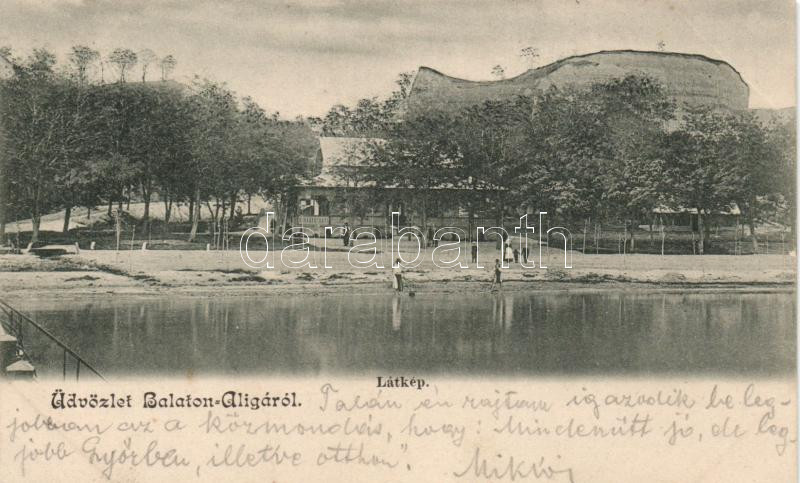 darabanth
Látkép.
Üdvözlet Balaton-Aligáról. Talán én rajtam igazodik be leg-
jobban az a közmondás, hogy: Mindenütt jó, de leg-
jobb Győrben, illetve otthon".
Miklós